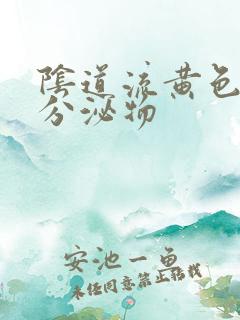 陰道流黃色
分泌物
安池一魚
未经同意禁止转载